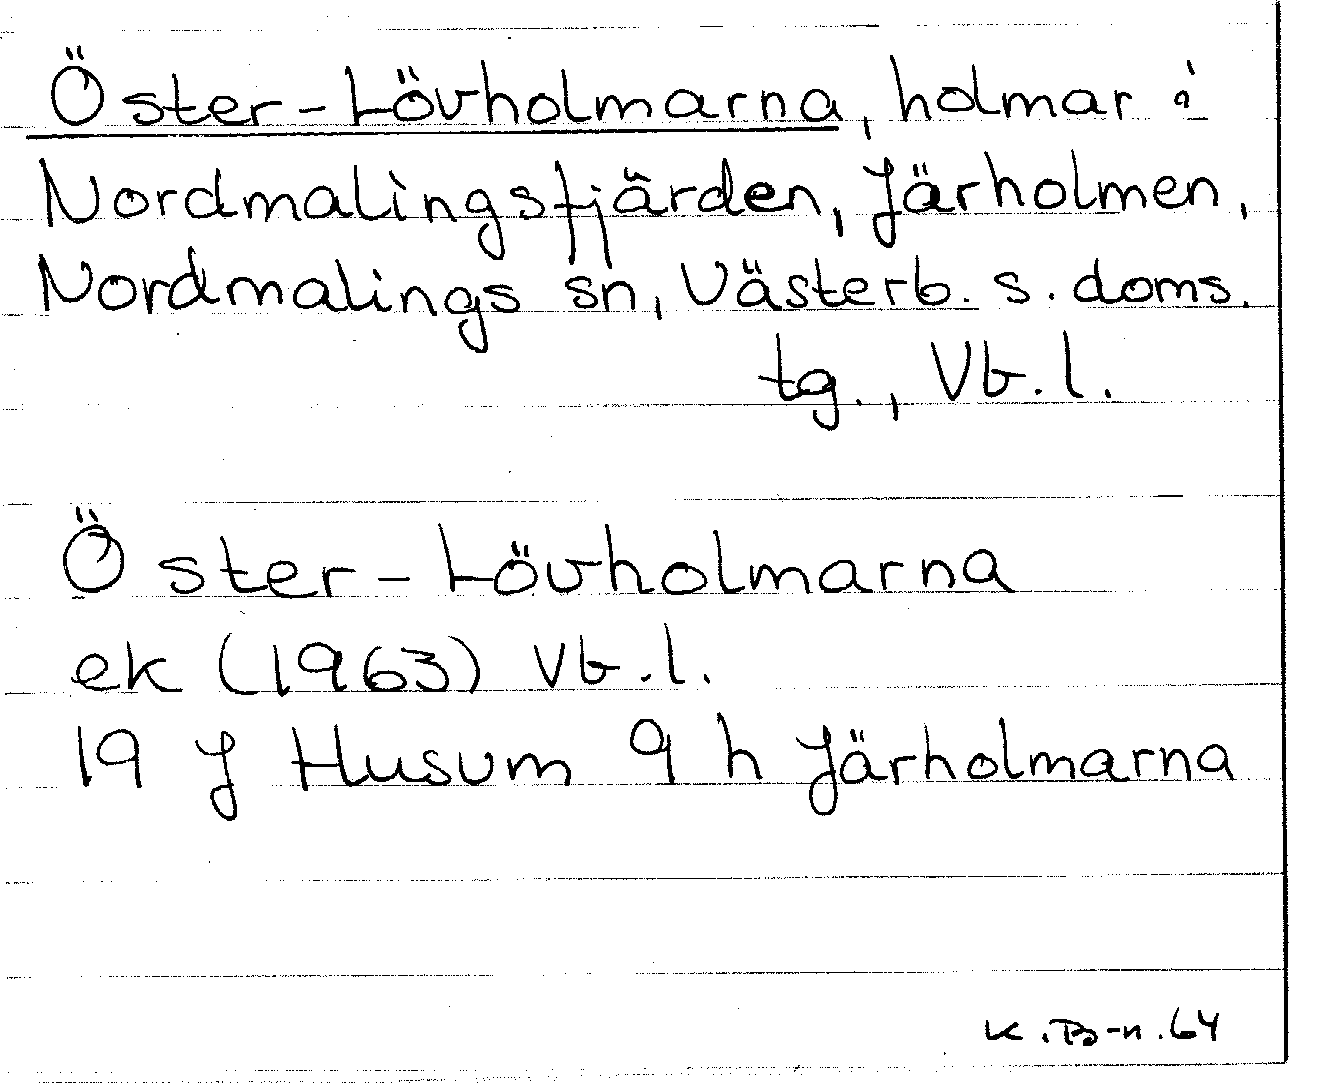 Öster-Lövholmarna, holmar i
Nordmalingsfjärden, Järholmen,
Nordmalings sn, Västerb. s. doms.
tg., Vb. l.
Öster-Lövholmarna
ek (1963) Vb. l.
19 J Husum 9 h Järholmarna
K.B-n.64